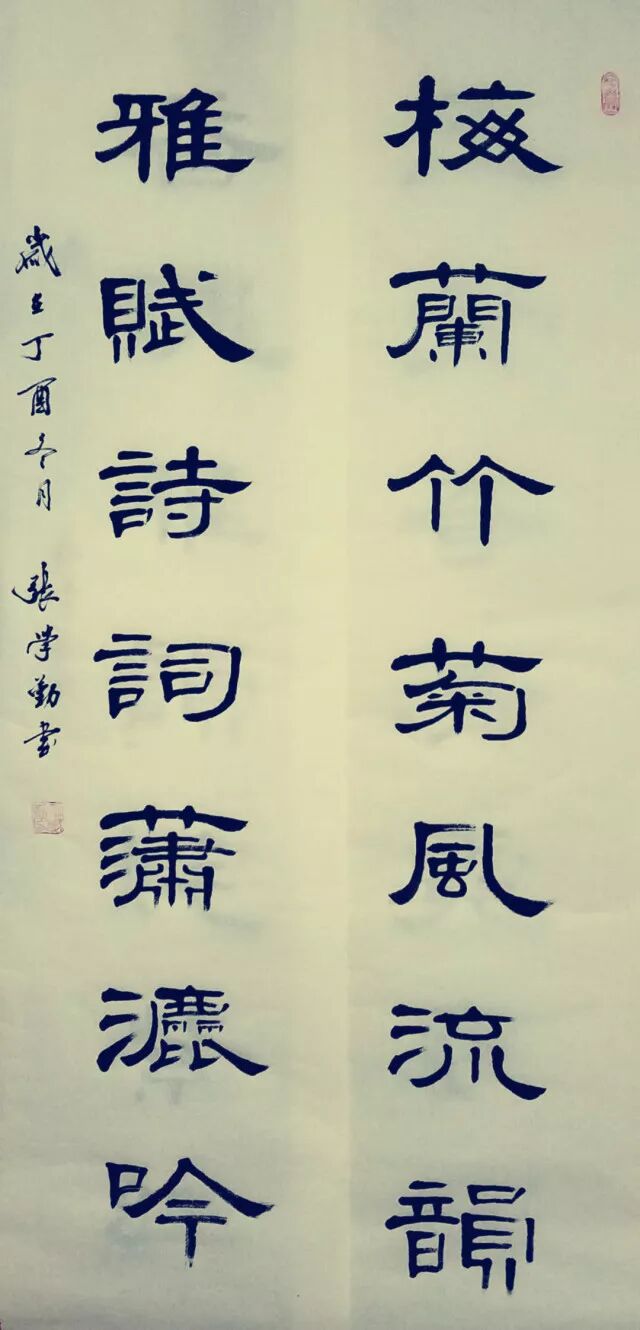 梅蘭竹菊風流韻
雅賦詩詞瀟灑吟
歲在丁酉冬月 張学勤书